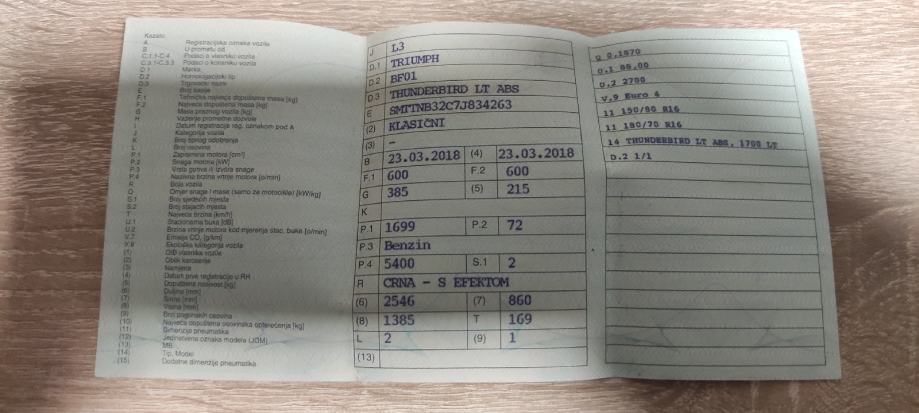 Kazalo:
A Registracijska oznaka vozila
B U prometu od
C.1.1-C.4 Podaci o vlasniku vozila
C.3.1-C.3.3 Podaci o korisniku vozila
D.1 Marka
D.2 Homologacijski tip
D.3 Trgovački naziv
E Broj šasije
F.1 Tehnička najveća dopuštena masa [kg]
F.2 Najveća dopuštena masa [kg]
G Masa praznog vozila [kg]
H Važenje prometne dozvole
I Datum registracije reg. oznakom pod A
J Kategorija vozila
K Broj tipnog odobrenja
L Broj osovina
P.1 Zapremina motora [cm³]
P.2 Snaga motora [kW]
P.3 Vrsta goriva ili izvora snage
P.4 Nazivna brzina vrtnje motora [o/min]
R Boja vozila
Q Omjer snage i mase (samo za motocikle) [kW/kg]
S.1 Broj sjedećih mjesta
S.2 Broj stajaćih mjesta
T Najveća brzina [km/h]
U.1 Stacionarna buka [dB]
U.2 Brzina vrtnje motora kod mjerenja stac. buke [o/min]
V.7 Emisija CO₂ [g/km]
V.9 Ekološka kategorija vozila
(1) OIB vlasnika vozila
(2) Oblik karoserije
(3) Namjena
(4) Datum prve registracije u RH
(5) Dopuštena nosivost [kg]
(6) Duljina [mm]
(7) Širina [mm]
(8) Visina [mm]
(9) Broj pogonskih osovina
(10) Najveća dopuštena osovinska opterećenja [kg]
(11) Dimenzije pneumatika
(12) Jedinstvena oznaka modela (JOM)
(13) MB
(14) Tip, Model
(15) Dodatne dimenzije pneumatika
J L3
D.1 TRIUMPH
D.2 BF01
D.3 THUNDERBIRD LT ABS
E SMTTNB32C7J834263
(2) KLASIČNI
(3) –
B 23.03.2018 (4) 23.03.2018
F.1 600 F.2 600
G 385 (5) 215
K
P.1 1699 P.2 72
P.3 Benzin
P.4 5400 S.1 2
R CRNA - S EFEKTOM
(6) 2546 (7) 860
(8) 1385 T 169
L 2 (9) 1
(13)
Q 0,1870
U.1 88,00
U.2 2700
V.9 Euro 4
11 150/80 R16
11 180/70 R16
14 THUNDERBIRD LT ABS, 1700 LT
D.2 1/1